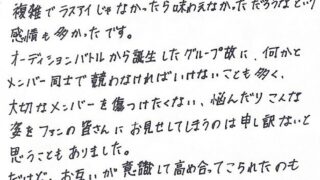 複雑でラスアイじゃなかったら味わえなかっただろうなという
感情も多かったです。
オーディションバトルから誕生したグループ故に、何かと
メンバー同士で競わなければいけないことも多く、
大切なメンバーを傷つけたくない、悩んだりこんな
姿をファンの皆さんにお見せしてしまうのは申し訳ないと
思うこともありました。
だけど、お互いが意識して高め合ってこられたのも